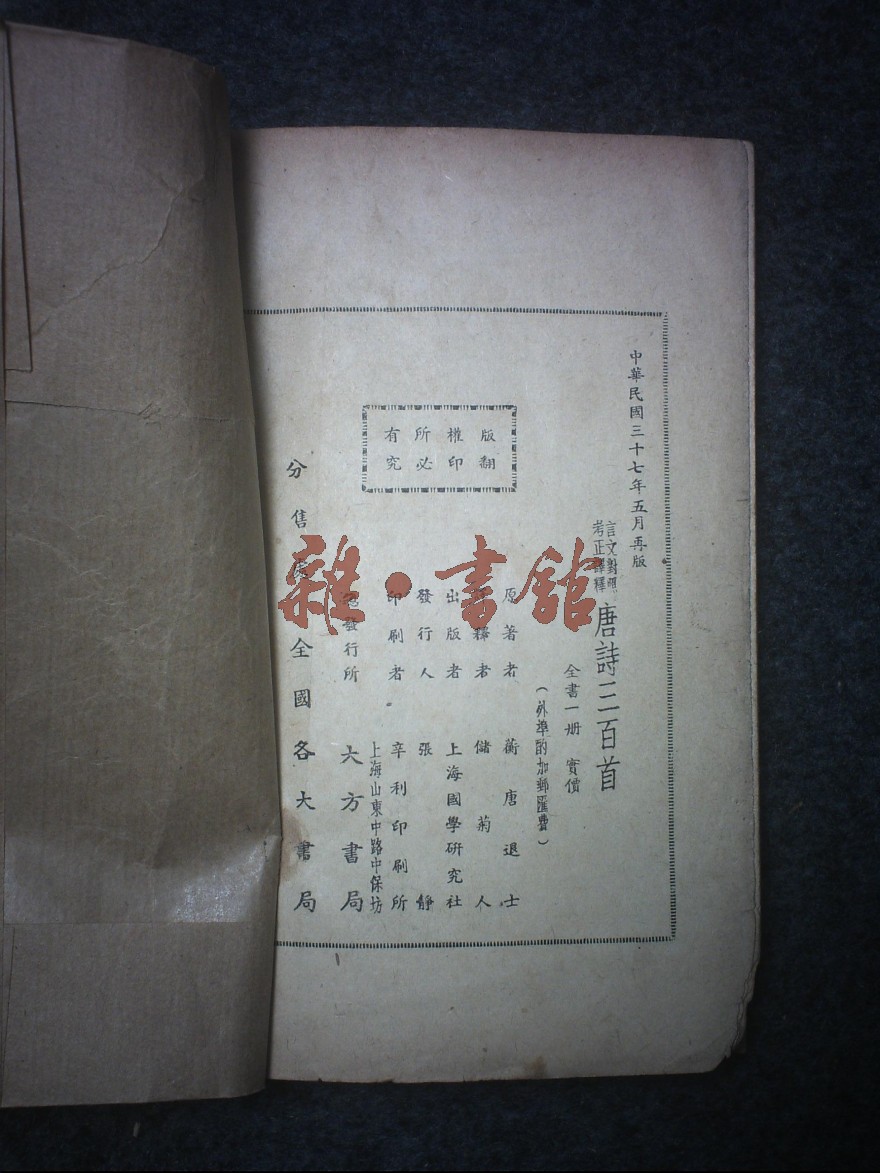 中華民國三十七年五月再版
言文對照
考正譯釋
唐詩三百首
全書一册 實價
(外埠酌加郵匯費)
版權所有
翻印必究
原著者 蘅唐退士
釋者 儲菊人
出版者 上海國學研究社
發行人 張靜
印刷者 辛利印刷所
上海山東中路中保坊
發行所 大方書局
分售處 全國各大書局
雜·書館